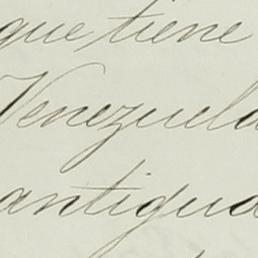 que tiene
Venezuela
antigua